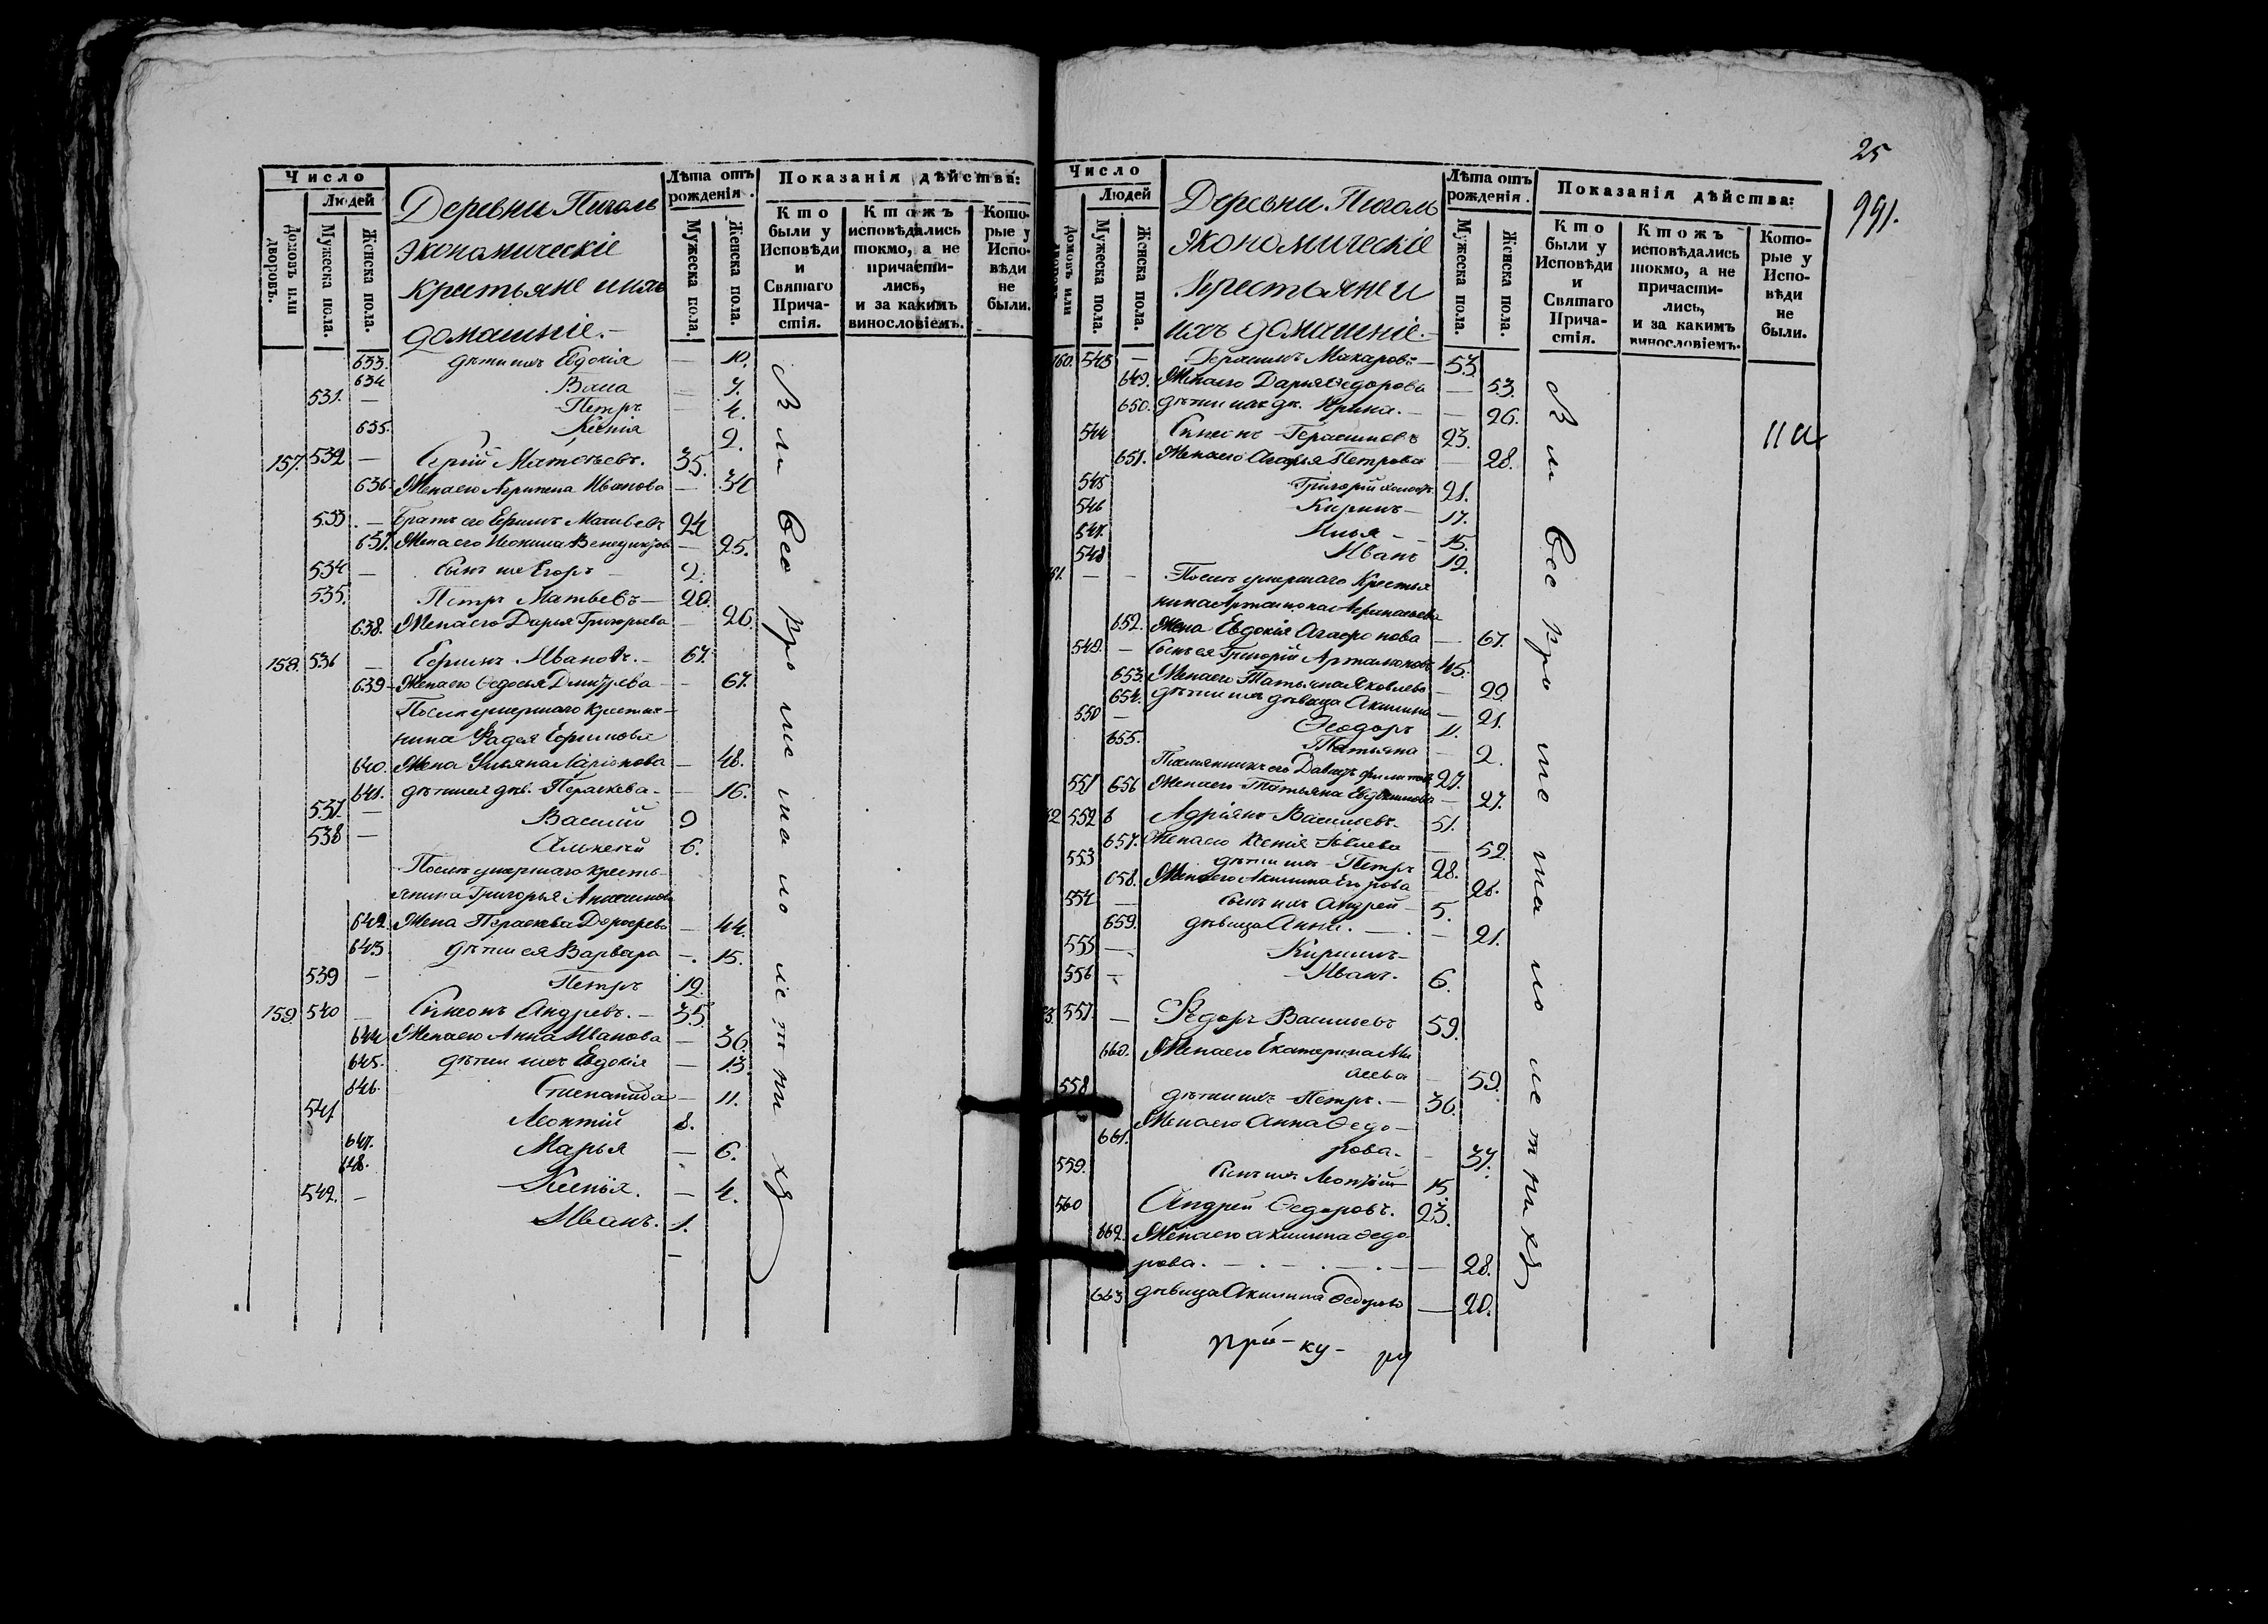 Число
Людей
Домовъ или дворовъ.
Мужеска пола.
Женска пола.
Деревни Пиголь
экономическіе
крестьяне и ихъ
домашніе.
Лѣта отъ рожденія.
Мужеска пола.
Женска пола.
Показанія дѣйства:
Кто были у Исповѣди и Святаго Прича-стія.
Ктожъ исповѣдались токмо, а не причасти-лись, и за какимъ винословіемъ.
Кото-рые у Испо-вѣди не были.
633. дѣти ихъ Евдокія — 10.
634 Васса — 7.
531. — Петръ — 4.
635. Ксенія 2.
157. 532 — Сергій Матѳѣевъ. 35.
636. Жена его Агрипена Иванова — 34
533. — Братъ его Ефимъ Матвѣевъ 24
637. Жена его Неонила Венедиктова — 25.
534 — Сынъ их Егоръ — 2.
535. Петръ Матвѣевъ — 20.
638. Жена его Дарья Григорьева — 26.
158. 536 — Ефимъ Ивановъ. — 67.
639 Жена его Ѳедосья Дмитрева — 67.
Послѣ умершаго крестья-
нина Фадея Ефимова
640. Жена Ульяна Ларіонова — 48.
641. дѣти ея дѣв. Параскева — 16.
537. — Василій 9
538 — Алексѣй 6.
Послѣ умершаго кресть-
янина Григорья
642. Жена Параскева Дорофева — 44.
643. дѣти ея Варвара — 15.
539 — Петръ 12.
159. 540 — Симеонъ Андревъ. — 35.
644. Жена его Анна Иванова — 36.
645. дѣти ихъ Евдокія — 13
646. Степанида — 11.
541. Леонтій 8.
647. Марья — 6.
648. Ксенія. — 4.
542. — Иванъ. 1.
всѣ проте
25
991.
Число
Людей
Домовъ или
Мужеска пола.
Женска пола.
Деревни Пиголь
экономическіе
крестьяне и
ихъ домашніе.
Лѣта отъ рожденія.
Мужеска пола.
Женска пола.
Показанія дѣйства:
Кто были у Исповѣди и Святаго Прича-стія.
Ктожъ исповѣдались токмо, а не причасти-лись, и за какимъ винословіемъ.
Кото-рые у Испо-вѣди не были.
160. 543 — Герасимъ Макаровъ — 53.
649. Жена его Дарья Ѳедорова — 53.
650. дѣти ихъ дѣ. Ирина. — 26.
544 Симеонъ Герасимовъ 23.
651. Жена его Агафья Петрова — 28.
545 Григорій холостъ 21.
546 Кирилъ — 17.
547. Илья — 15.
548 Иванъ 12.
— — Послѣ умершаго Крестья
нина Артамона
652. Жена Евдокія Агафонова — 67.
549. — Сынъ ея Григорій Артамоновъ 45.
653. Жена его Татьяна Яковлева — 29
654. дѣти ихъ дѣвица Акилина — 21.
550 — Ѳеодоръ 11.
655. Татьяна — 2.
Племянникъ его Давидъ Филиповъ 27.
551 656 Жена его Татьяна Евдокимова — 27.
552 Адріянъ Васильевъ. 51.
657. Жена его Ксенія — 52.
553 дѣти ихъ Петръ 28.
658. Жена его Акилина Егорова — 26.
554 — Сынъ ихъ Андрей — 5.
659. дѣвица Анна. — 21.
555 — Кирилъ —
556 — Иванъ. 6.
557. — Ѳедоръ Васильевъ 59.
660. Жена его Екатерина Ми
сеева — 59.
558 дѣти ихъ Петръ. — 36.
661. Жена его Анна Ѳедо-
рова. — 37.
559. Сынъ ихъ Леонтій 15.
560 Андрей Ѳедоровъ. 23.
662. Жена его Акилина Ѳедо
рова. — 28.
663 дѣвица Акилина Ѳедорова — 20.